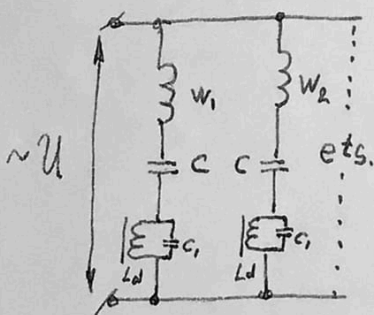 W₁
W₂
~U
C
C
ets.
C₁
C₁
Ld
Ld